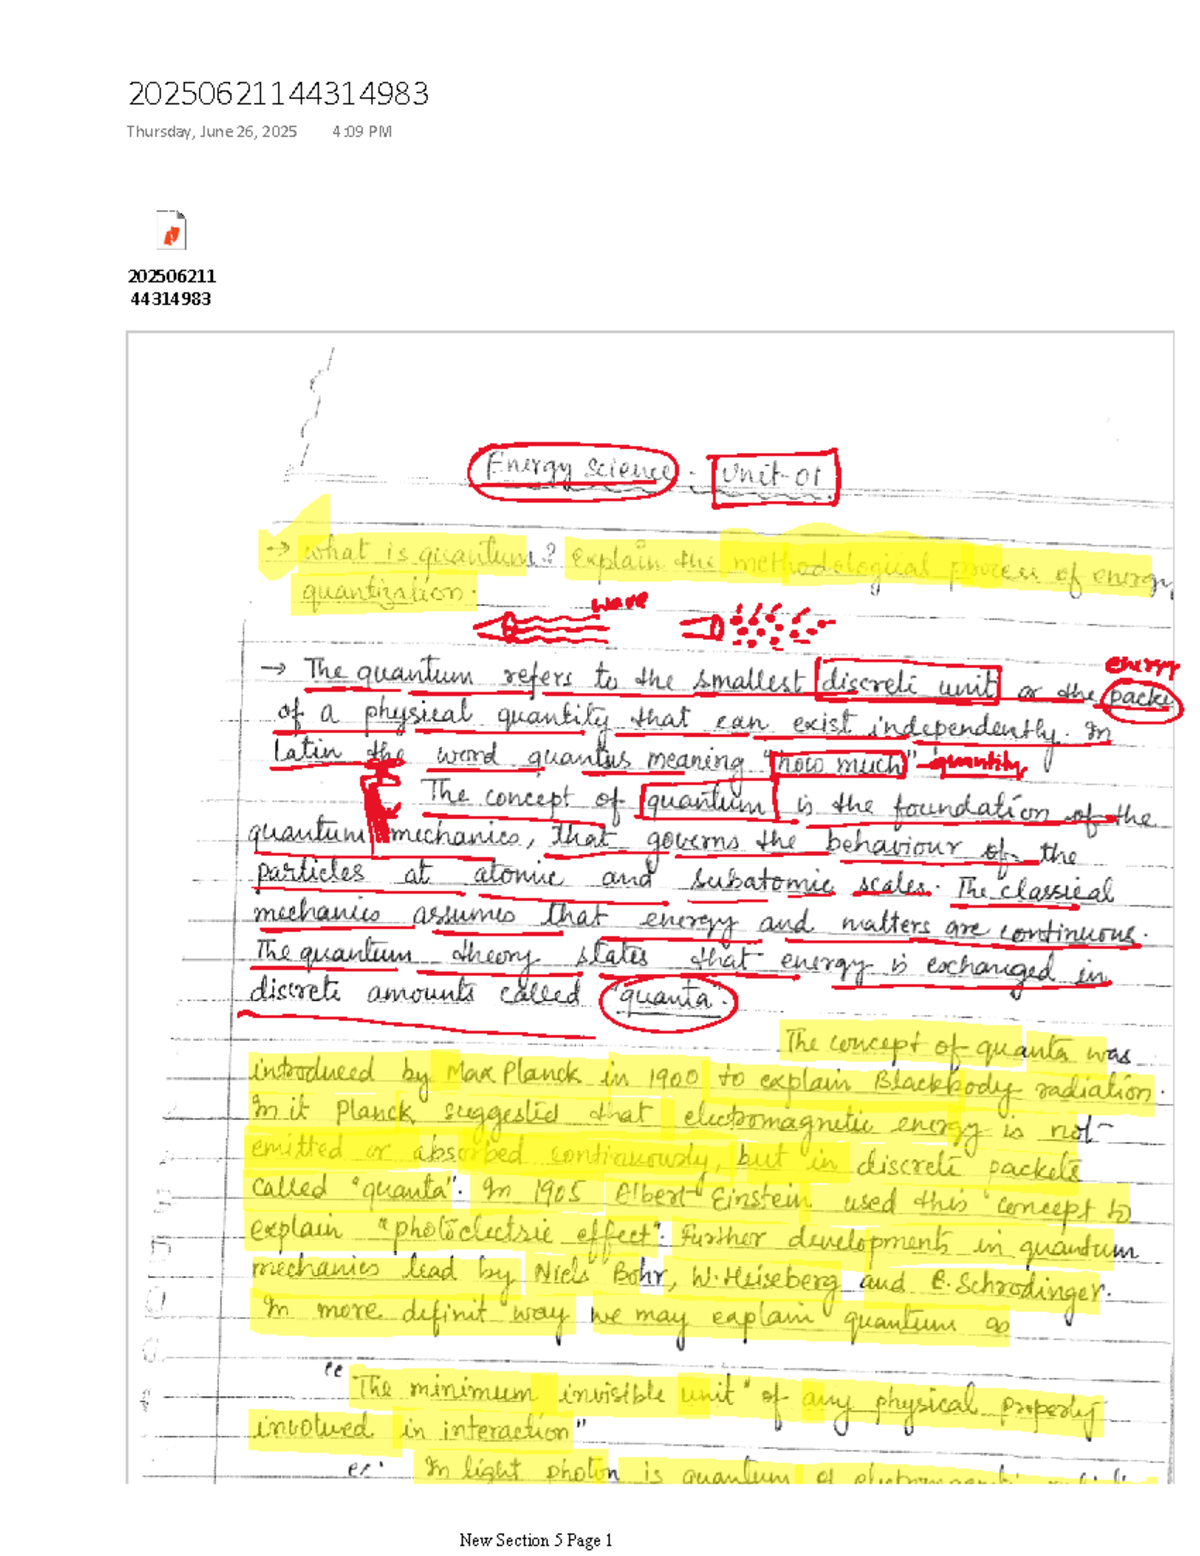 20250621144314983
Thursday, June 26, 2025 4:09 PM
202506211
44314983
Energy Science - Unit-01
→ what is quantum? explain the methodological process of energy
quantization.
wave
energy
→ The quantum refers to the smallest discrete unit or the packe
of a physical quantity that can exist independently. In
latin the word quantus meaning "how much" quantity
The concept of quantum is the foundation of the
quantum mechanics, that governs the behaviour of the
particles at atomic and subatomic scales. The classical
mechanics assumes that energy and matters are continuous.
The quantum theory states that energy is exchanged in
discrete amounts called "quanta".
The concept of quanta was
introduced by Max Planck in 1900 to explain Blackbody radiation.
In it Planck suggested that electromagnetic energy is not
emitted or absorbed continuously, but in discrete packets
called "quanta". In 1905 Albert Einstein used this concept to
explain "photoelectric effect". Further developments in quantum
mechanics lead by Niels Bohr, W. Heiseberg and E. Schrodinger.
In more definit way we may explain quantum as
"The minimum invisible unit" of any physical property
involved in interaction"
ex: In light photon is quantum of electromagnetic
New Section 5 Page 1